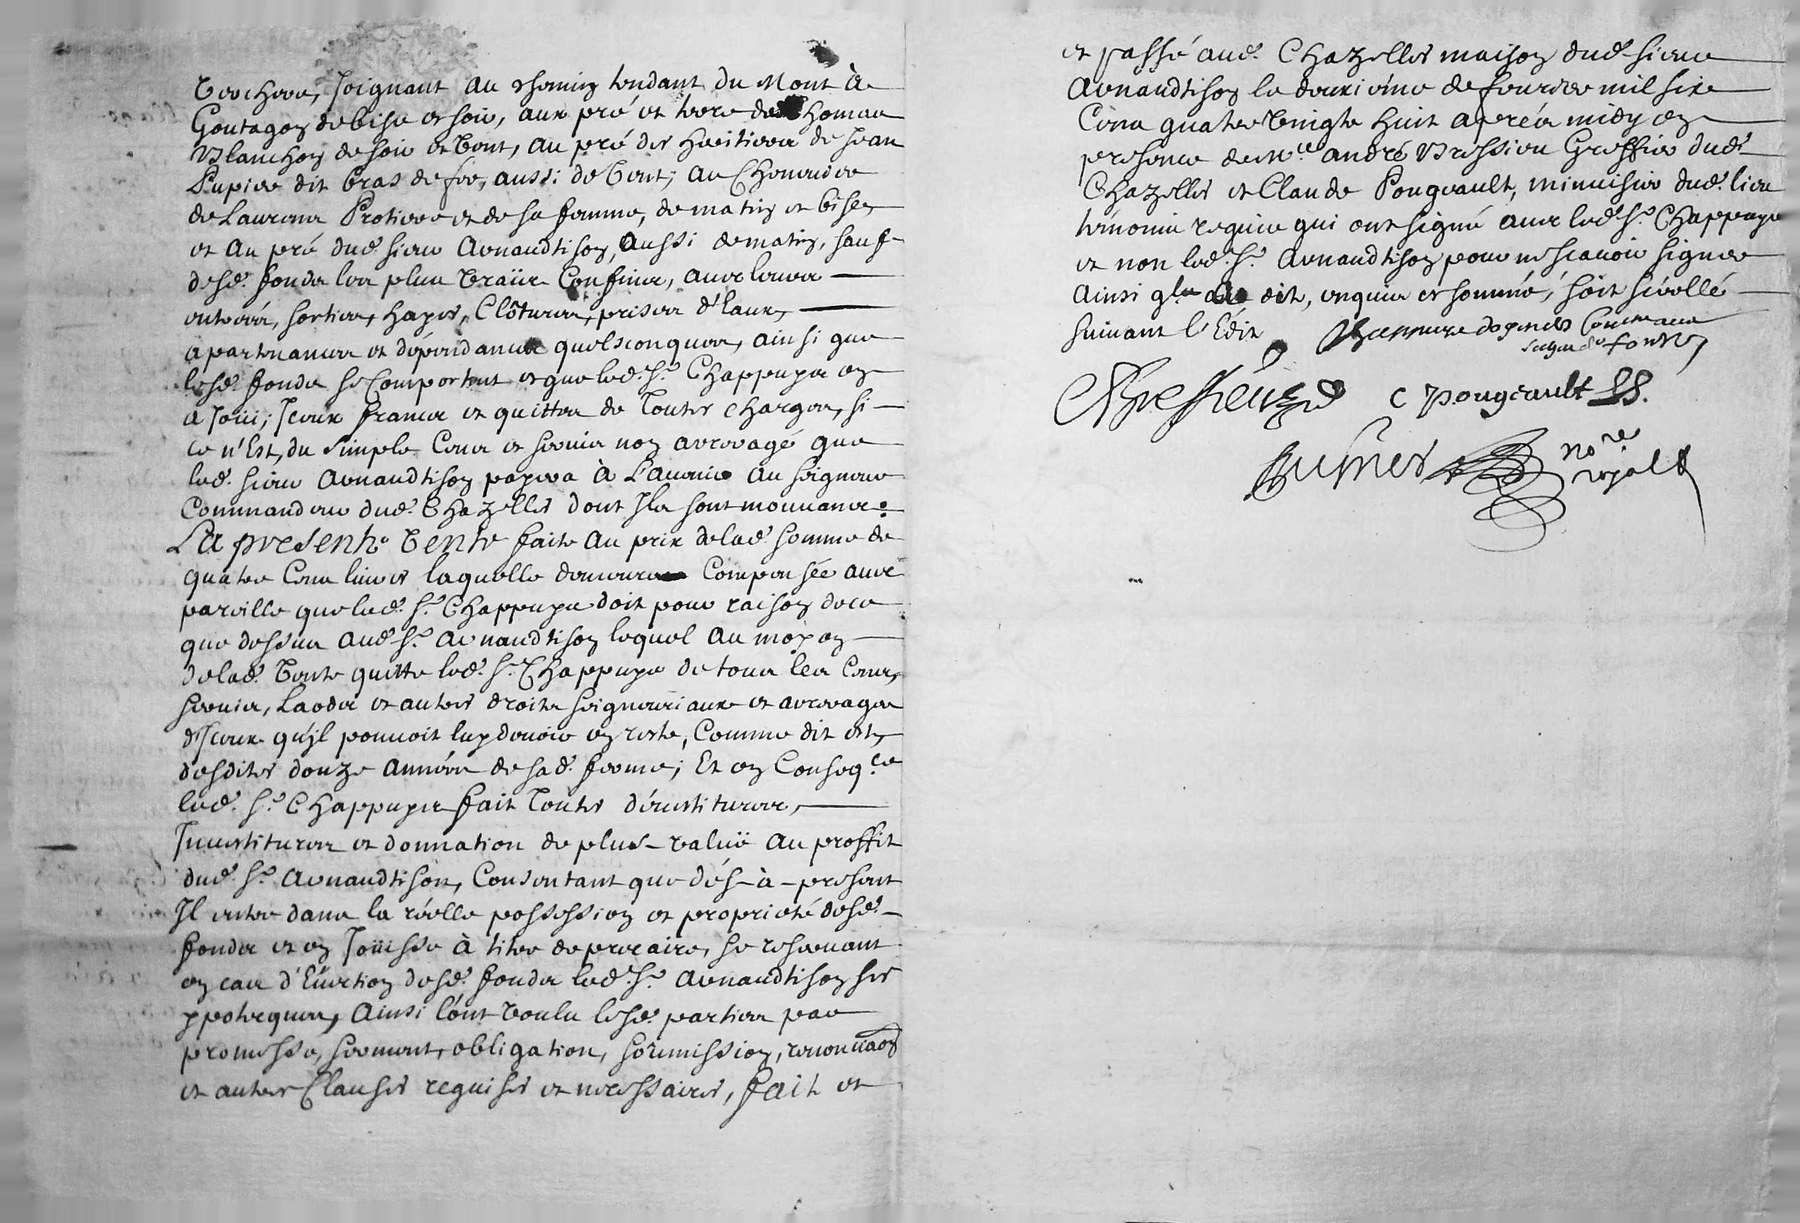 Joignant au chemin tendant du Mont à
Goutagon de bise et soir, aux pré et terre de Thomas
Blanchon de soir et vent, au pré des heritiers de Jean
Pupier dit bras de fer, aussi de vent; au Chenevier
de Laurent Protiere et de sa femme, de matin et bise,
et au pré dud. sieur Arnaudtison, aussi de matin, sauf
desd. fonds les plus vraïs Confins, avec leurs
entrées, sorties, hayes, Clôtures, prises d'Eaux,
apartenances et dépendances quelsconques, ainsi que
lesd. fonds se Comportent et que led. Sr. Chappuys en
a Joüi; Iceux francs et quittes de Toutes charges, si
ce n'Est, du simple Cens et servis non arreragé que
led. sieur Arnaudtison payera à L'avenir au seigneur
Commandeur dud. Chazelles dont Ils sont mouvants.
La presente Vente faite au prix de lad. somme de
quatre Cens livres laquelle demeure Compensée avec
pareille que led. Sr. Chappuys doit pour raison de ce
que dessus aud. Sr. Arnaudtison lequel au moyen
de lad. Vente quitte led. Sr. Chappuys de tous les Cens,
servis, Laods et autres droits seigneuriaux et arrerages
d'Iceux qu'jl pouvoit luy devoir en reste, Comme dit est,
desdites douze années de sad. ferme; Et en Conseq.ce
led. Sr. Chappuys fait Toutes dévestitures,
Investitures et donnation de plus-valuë au proffit
dud. Sr. Arnaudtison, Consentant que dés-à-present
Il entre dans la réelle possession et proprieté desd.
fonds et en Joüisse à titre de precaire, se reservant
en cas d'Eviction desd. fonds led. Sr. Arnaudtison ses
ypoteques, Ainsi l'ont Voulu lesd. parties par
promesse, serment, obligation, soûmission, renon
et autres Clauses requises et necessaires, fait et
et passé aud. Chazelles maison dud. sieur
Arnaudtison le deuxiéme de fevrier mil six
Cens quatre Vingts huit aprés midy en
presence de Me. André Bression Greffier dud.
Chazelles et Claude Pougeault, menuisier dud. lieu
témoins requis qui ont signé avec led. Sr. Chappuys
et non led. Sr. Arnaudtison pour ne sçavoir signer
Ainsi qla dit, enquis et sommé, soit scéellé
suivant l'Edit
C Pougeault
no.re
royal